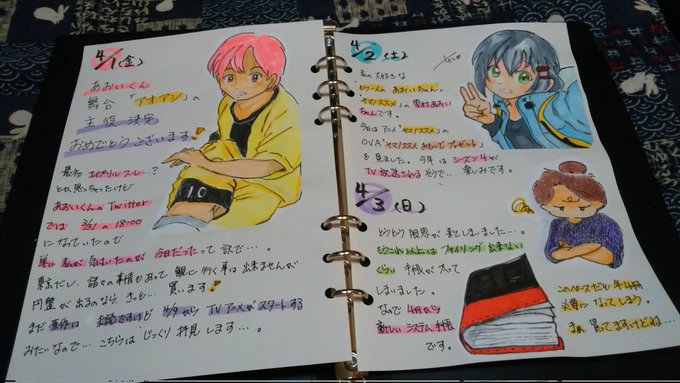 4/1(金)
あおいくん
舞台「アオアシ」の
主役決定
おめでとうございます!
最初エイプリルフール…?
とか思っちゃったけど
あおいくんのTwitter
では 3/31の18:00
になっていたので
単に私が気付いたのが今日だったって訳で…。
東京だし、諸々の事情もあって観に行く事は出来ませんが
円盤が出るのなら、きっと…買います!
まだ原作は未読ですけど 4/9から TVアニメがスタートする
みたいなので… こちらはじっくり拝見します…。
4/2(土)
私の大好きな
もう一人のあおいちゃん。
「ヤマノススメ」の雪村あおい
ちゃんです。
今日はアニメ「ヤマノススメ」の
OVA「ヤマノススメ おもいでプレゼント」
を見ました。今年はシーズン4が
TV放送されるそうで…楽しみです。
4/3(日)
とうとう限界が来てしまいました…。
もうこれ以上はファイリング出来ない
くらい手帳が太って
しまいました。
なので4月から
新しいシステム手帳
です。
このペースだと年4冊
必要になってしまう。
まぁ、買てますけどね…
10